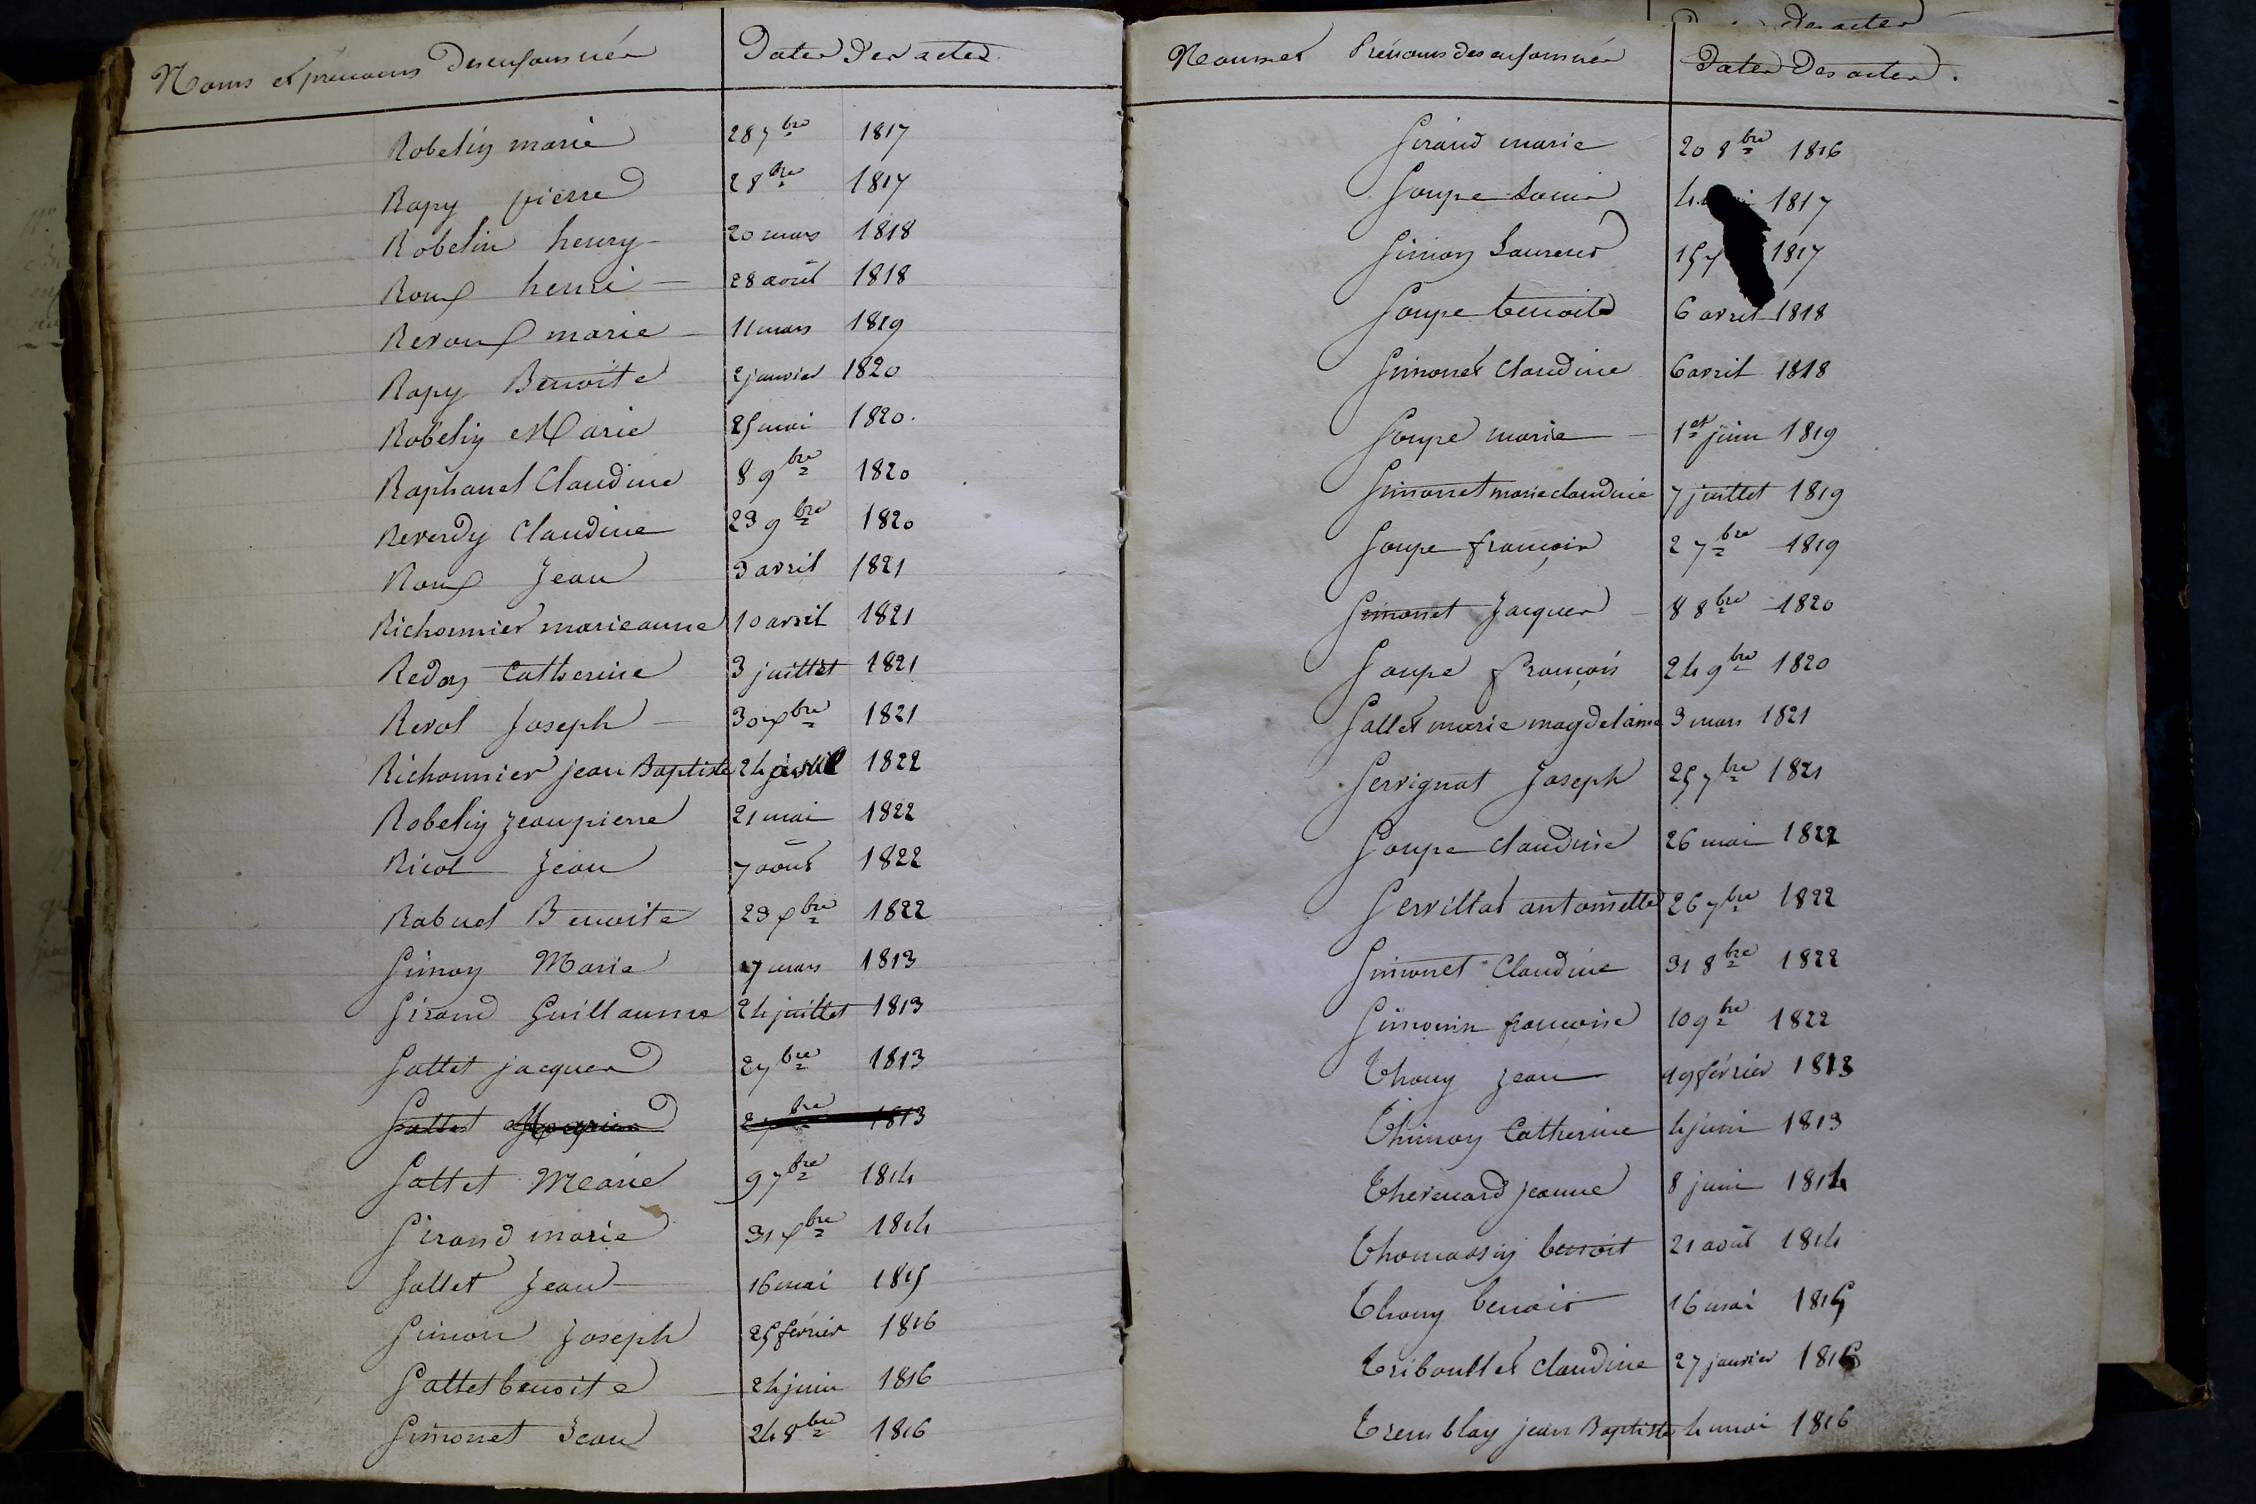 Noms et prénoms des enfans nés Dates des actes.
Robelin marie 28 7bre 1817
Rapy pierre 2 8bre 1817
Robelin henry 20 mars 1818
Roux henri 28 août 1818
Revoux marie 11 mars 1819
Rapy Benoite 2 janvier 1820
Robelin Marie 25 mai 1820.
Raphanel Claudine 8 9bre 1820
Reverdy Claudine 23 9bre 1820
Roux Jean 3 avril 1821
Richonnier marie anne 10 avril 1821
Redon Catherine 3 juillet 1821
Revol Joseph 30 xbre 1821
Richonnier jean Baptiste 24 avril 1822
Robelin Jean pierre 21 mai 1822
Ricol Jean 7 août 1822
Rabuel Benoite 23 xbre 1822
Simon Marie 7 mars 1813
Siraud Guillaume 24 juillet 1813
Sallet jacques 2 7bre 1813
Sallet 2 7bre 1813
Sallet Marie 9 7bre 1814
Siraud marie 31 xbre 1814
Sallet Jean 16 mai 1815
Simon Joseph 25 février 1816
Sallet benoite 24 juin 1816
Simonet Jean 24 8bre 1816
Noms et Prénoms des enfans nés Dates Des actes.
Siraud marie 20 8bre 1816
Soupe Louis 4 1817
Simon Laurent 15 1817
Soupe benoite 6 avril 1818
Simonet Claudine 6 avril 1818
Soupe marie 1er juin 1819
Simonet marie claudine 7 juillet 1819
Soupe françois 2 7bre 1819
Simonet Jacques 8 8bre 1820
Soupe François 24 9bre 1820
Sallet marie magdelaine 3 mars 1821
Servignat Joseph 25 7bre 1821
Soupe claudine 26 mai 1822
Servillat antoinette 26 7bre 1822
Simonet Claudine 31 8bre 1822
Simonin françoise 10 9bre 1822
Thouy Jean 19 février 1813
Thimon Catherine 4 juin 1813
Thevenard jeanne 8 juin 1814
Thomassin benoit 21 août 1814
Thouy benoit 16 mai 1815
Triboullet Claudine 27 janvier 1816
Tremblay jean Baptiste 4 mai 1816